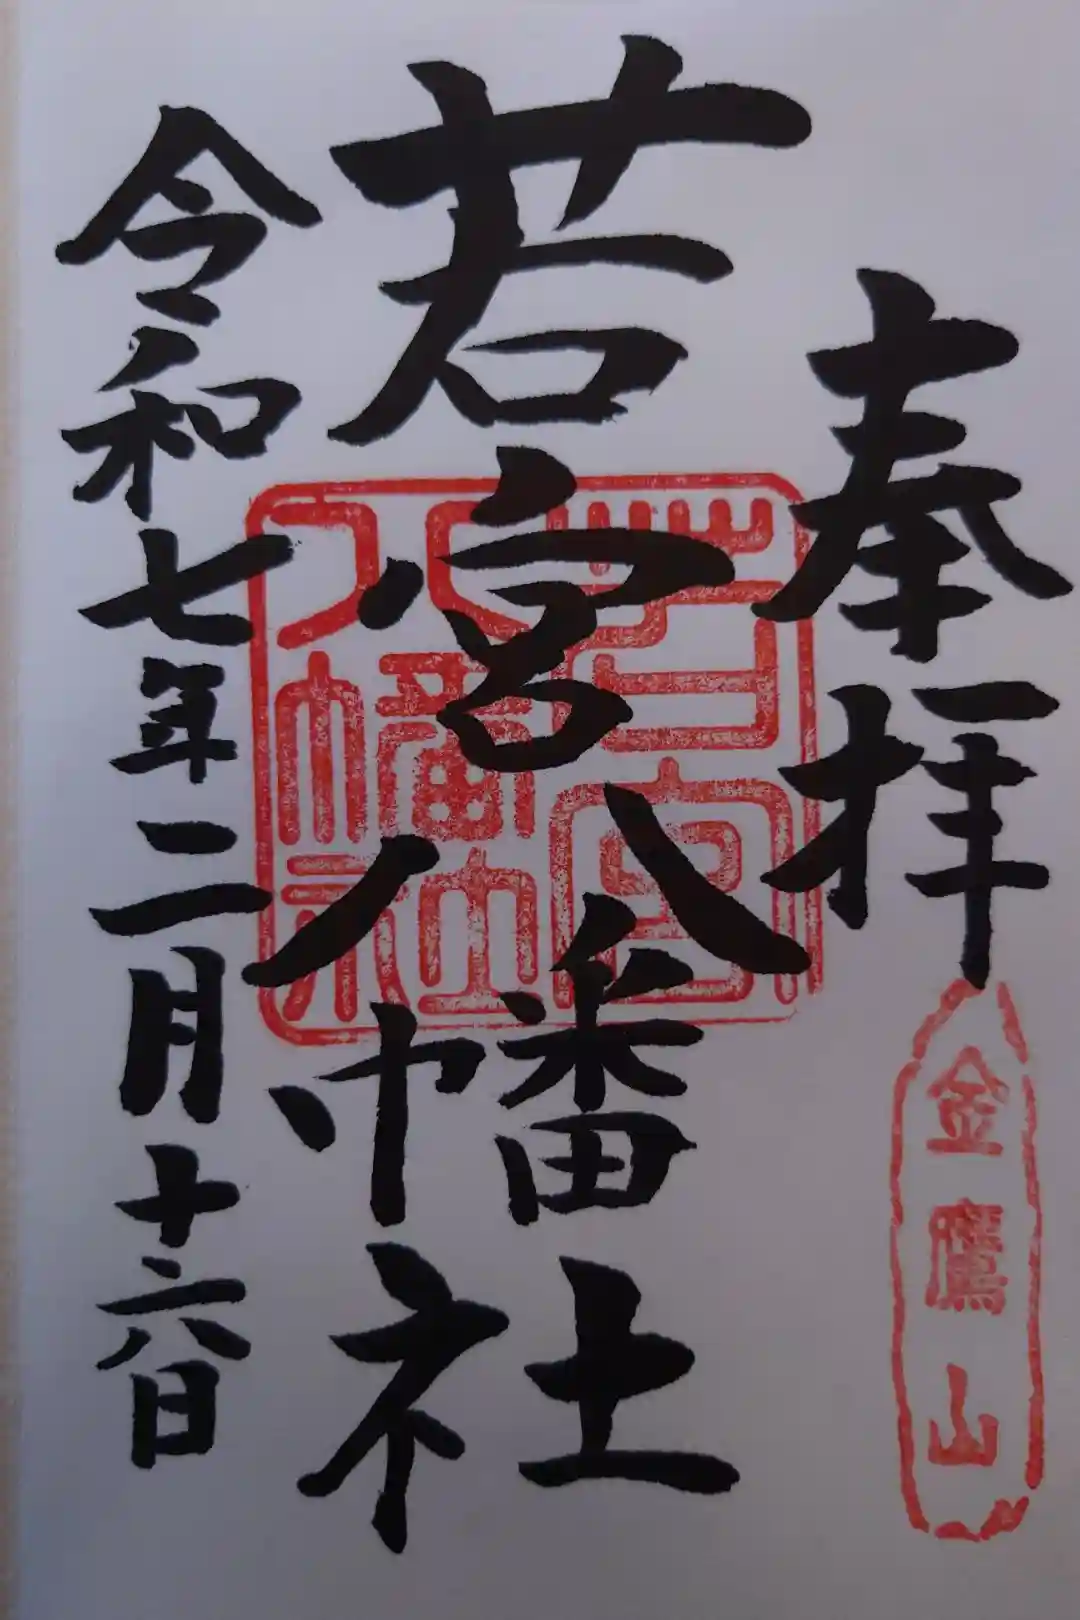 奉拝
金鷹山
若宮八幡社
若宮
八幡社
令和七年二月十六日